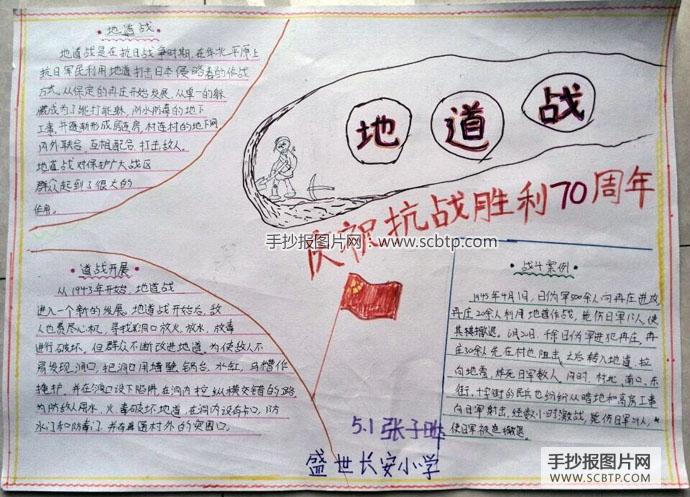 地道战
地道战是在抗日战争时期，在华北平原上
抗日军民利用地道打击日本侵略者的作战
方式。从保定的冉庄开始发展，从单一的躲
藏成为了能打能躲、防水防毒的地下
工事，并逐渐形成房连房、村连村的地下网
内外联合，互相配合，打击敌人。
地道战对保护广大战区
群众起到了很大的
作用。
地道战
庆祝抗战胜利70周年
手抄报图片网：www.scbtp.com
道战开展
从1943年开始，地道战
进入一个新的发展。地道战开始后，敌
人也费尽心机，寻找洞口放火，放水，放毒
进行破坏，但群众不断改进地道，为使敌人不
易发现洞口，把洞口用墙壁、锅台、水缸、马槽作
掩护，并在洞口设下陷阱，在洞内挖纵横交错的
为防敌人用水，火毒破坏地道，在洞内设有卡口，防
水门和防毒门，并有通村外的突围口。
战斗案例
1945年4月1日，日伪军500余人向冉庄进攻
冉庄20余人利用地道作战，毙伤日军17人使
其横撤退。6月20日，千余日伪军进犯冉庄，冉
庄30余人先在村边阻击，之后转入地道，拉
向地雷，炸死日军数人，同时，村北，南口，东
街，十字街的民兵也纷纷从暗地和高房工事
向日军射击，经数小时激战，毙伤日军29人，
使日军被迫撤退。
5.1 张子晔
盛世长安小学
手抄报图片网
SCBTP.COM